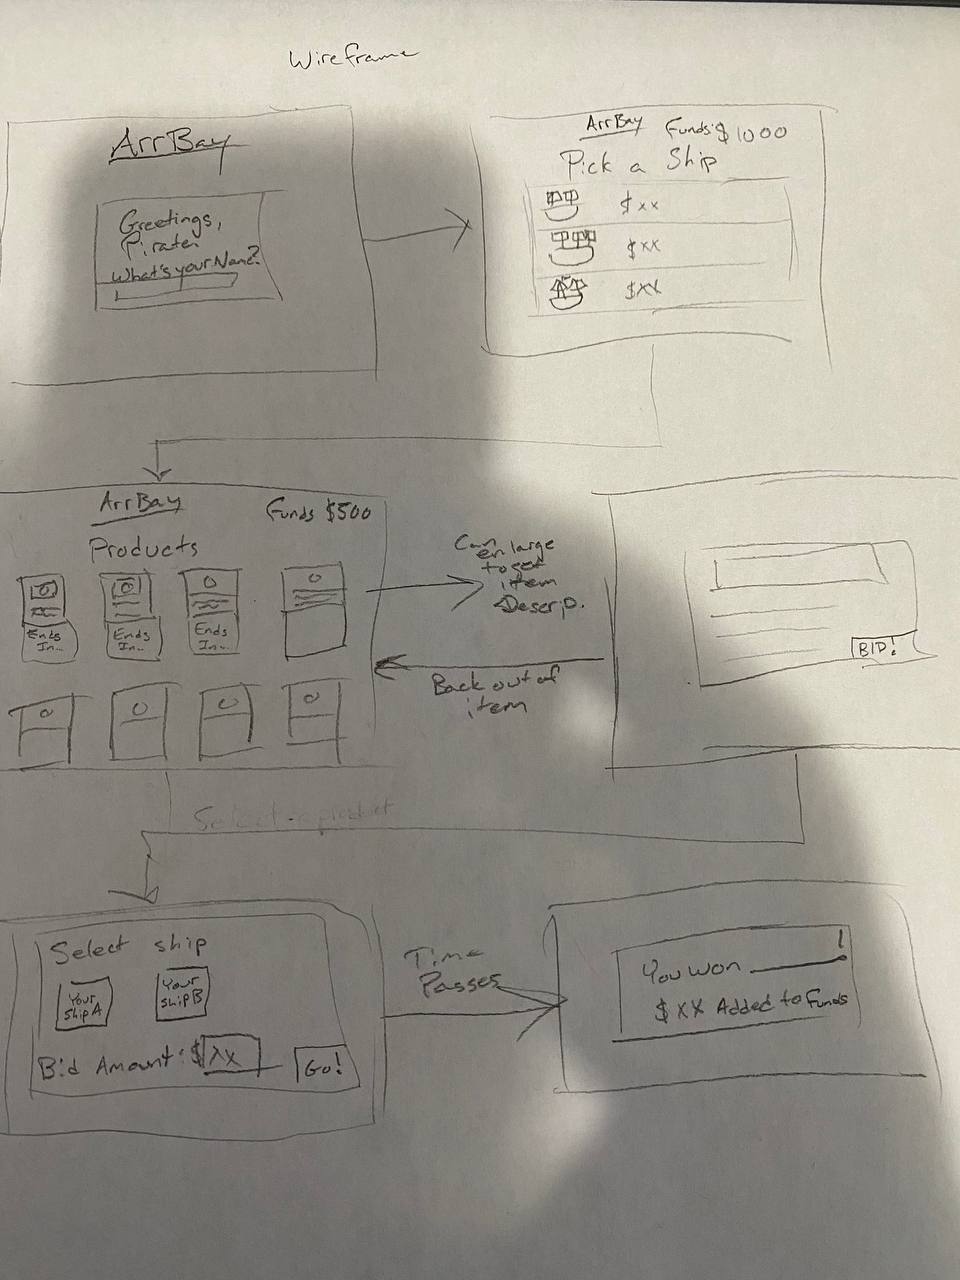 Wireframe
ArrBay
Greetings,
Pirate.
What's your Name?
ArrBay Funds: $1000
Pick a Ship
$xx
$xx
$xx
ArrBay Funds $500
Products
Ends
In...
Ends
In...
Ends
In...
Can
enlarge
to get
item
Descrip.
Back out of
item
BID!
Select a product
Select ship
Your
Ship A
Your
Ship B
Bid Amount: $xx
Go!
Time
Passes
You won !
$xx Added to Funds